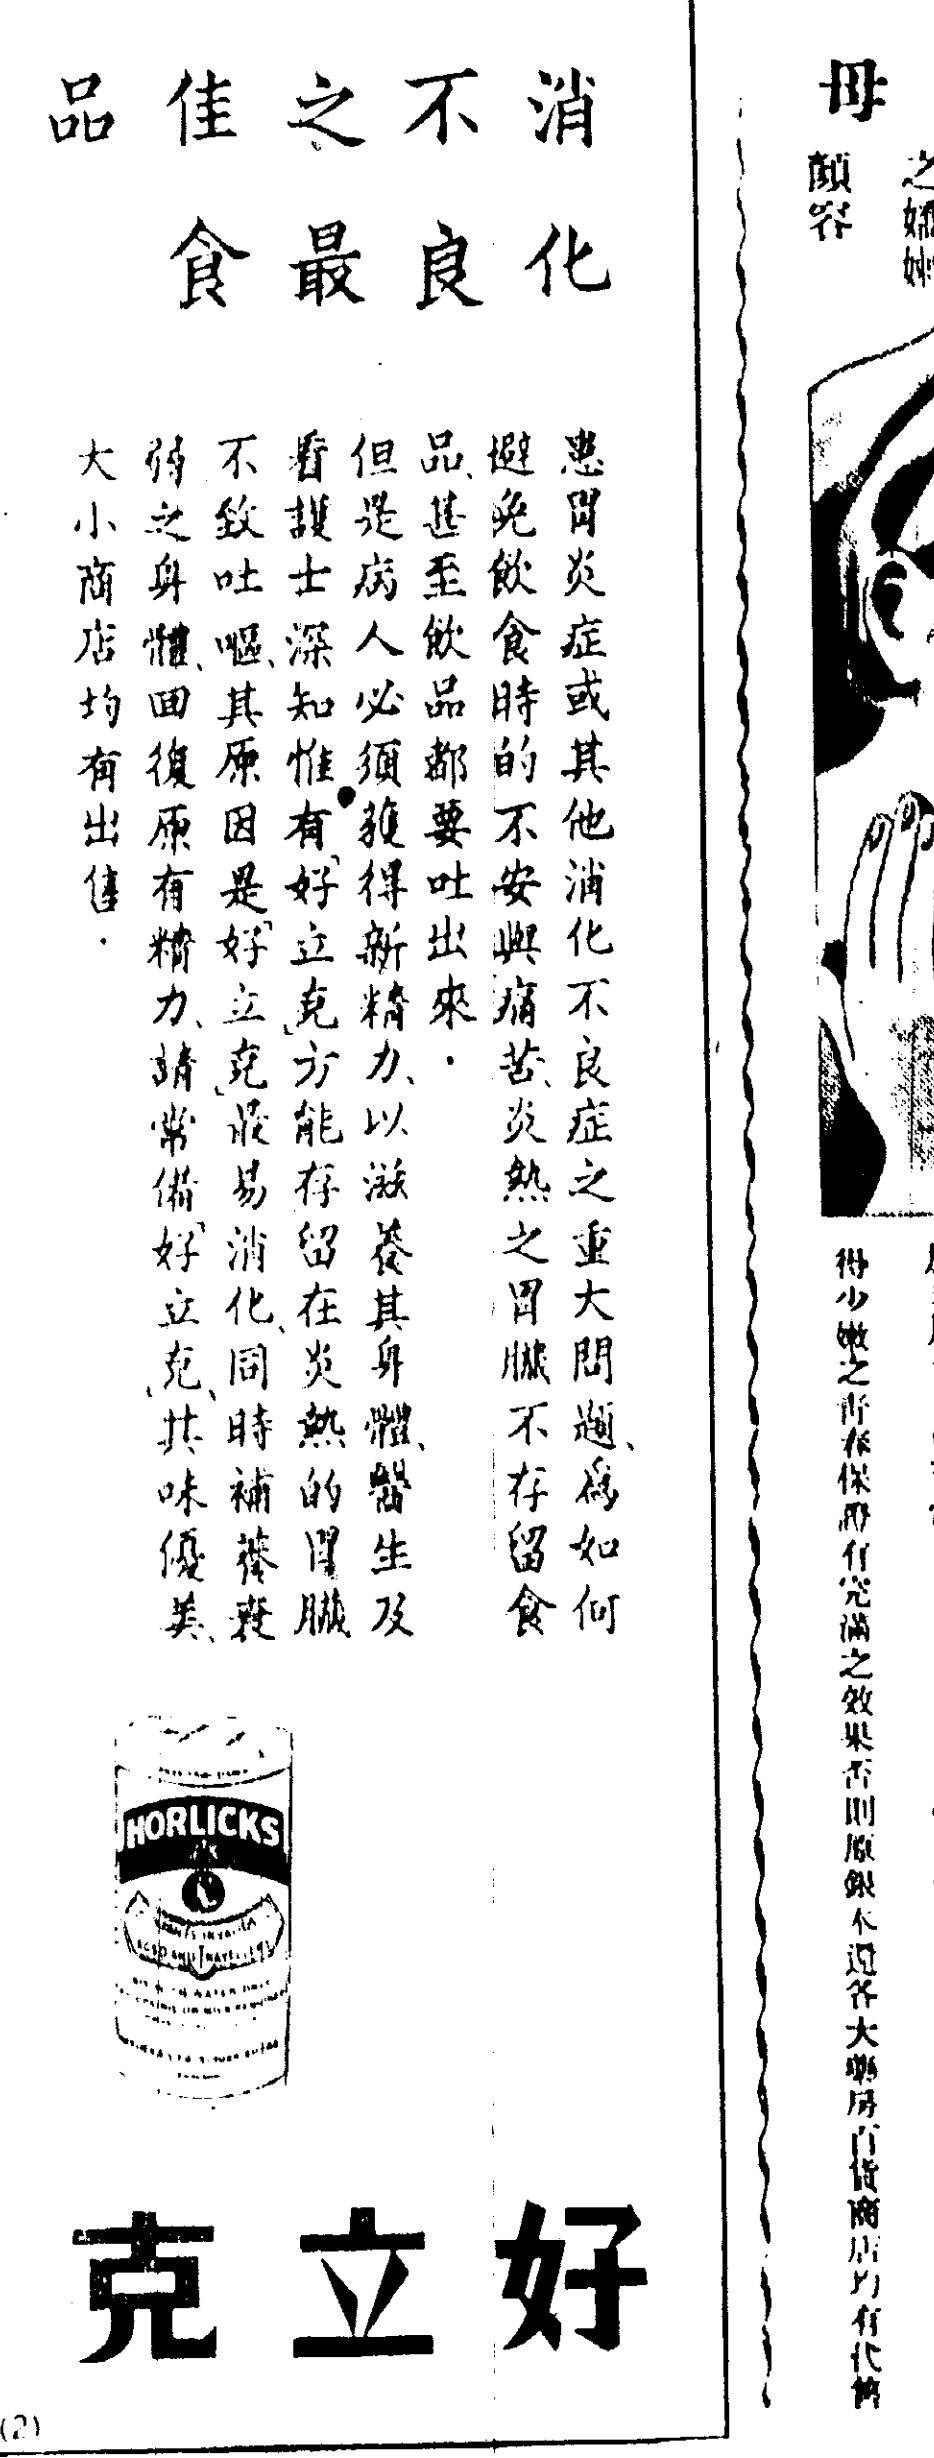 消化
不良
之最
佳食
品
患胃炎症或其他消化不良症之重大問題、爲如何
避免飲食時的不安與痛苦、炎熱之胃臟不存留食
品、甚至飲品都要吐出來．
但是病人必須獲得新精力、以滋養其身體、醫生及
看護士深知惟有「好立克」方能存留在炎熱的胃臟、
不致吐嘔、其原因是「好立克」最易消化、同時補養衰
弱之身體、回復原有精力、請常備「好立克」、其味優美、
大小商店均有出售．
HORLICKS
AGED AND TRAVELLERS
好立克
(2)
母
之
顏容
得少嫩之青春保證有完滿之效果否則原銀不還各大藥房百貨商店均有代售